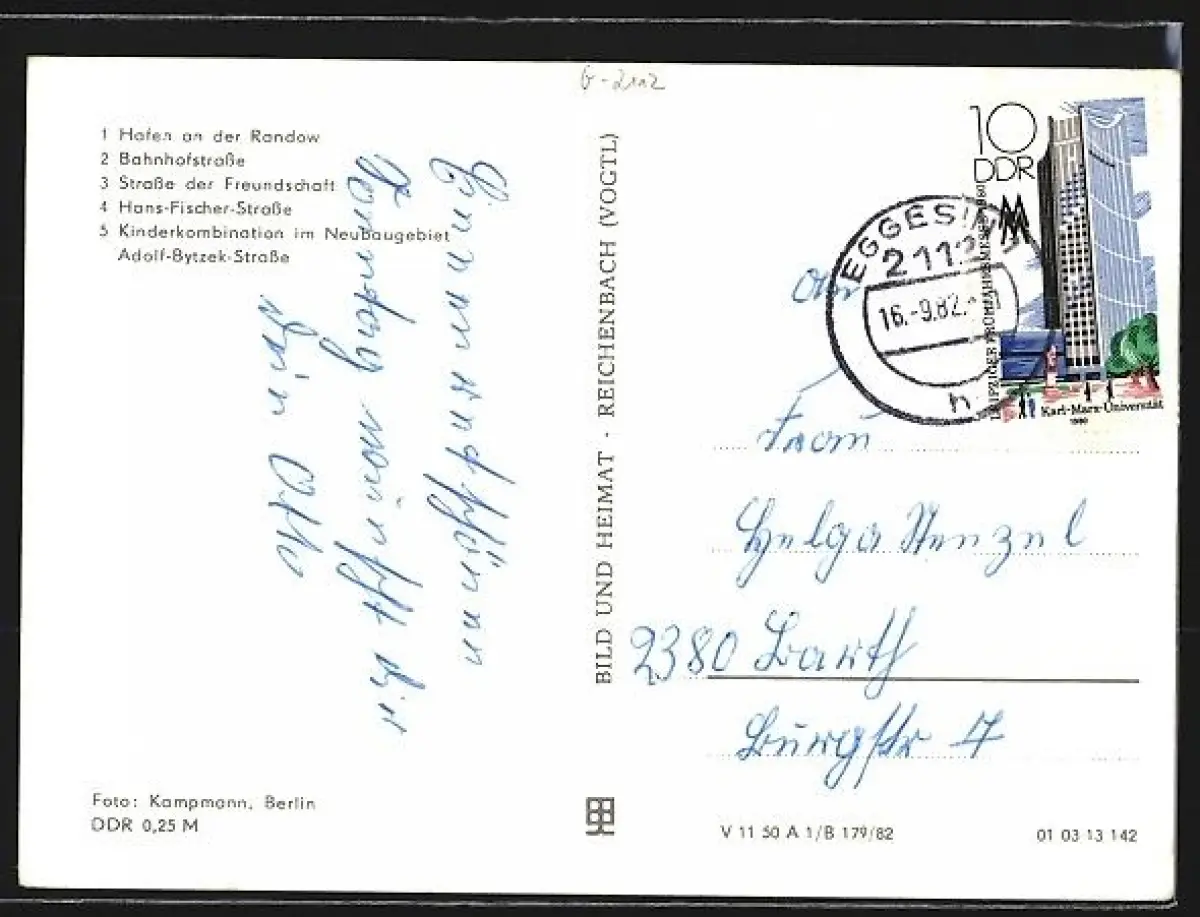 G-2112
1 Hafen an der Randow
2 Bahnhofstraße
3 Straße der Freundschaft
4 Hans-Fischer-Straße
5 Kinderkombination im Neubaugebiet
Adolf-Bytzek-Straße
Einen recht schönen
Sonntag wünscht dir
Foto: Kampmann, Berlin
DDR 0,25 M
BILD UND HEIMAT · REICHENBACH (VOGTL)
10
DDR
LEIPZIGER FRÜHJAHRSMESSE 1980
Karl-Marx-Universität
1980
EGGESIN 1
2112
16.-9.82.
h
Frau
Helga Stenzel
2380 Barth
Burgstr 7
V 11 50 A 1/B 179/82
01 03 13 142